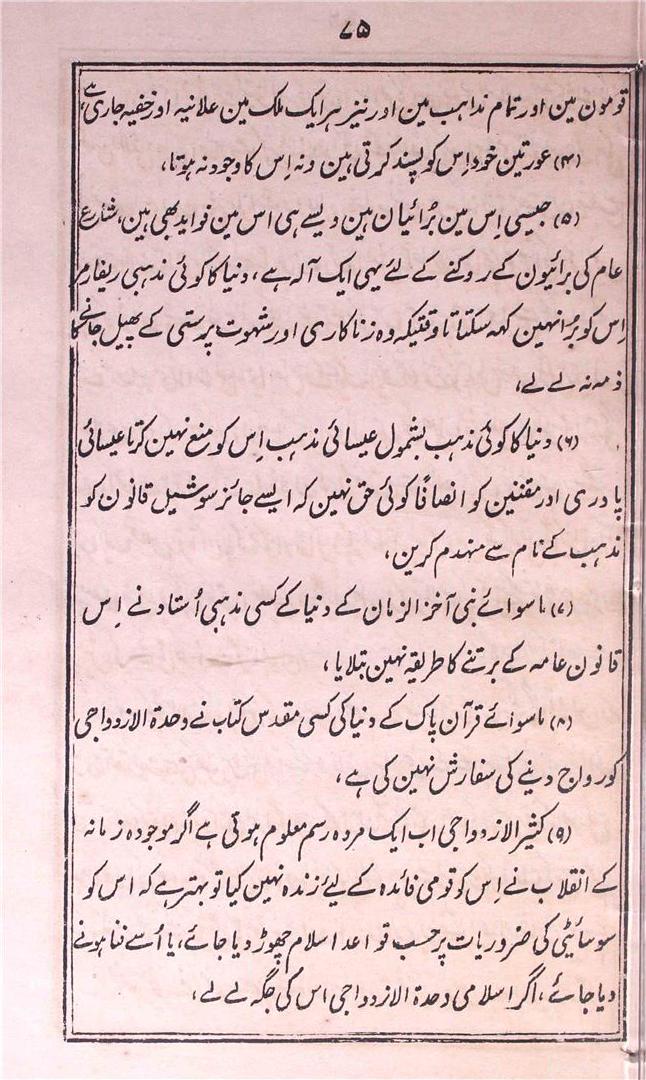 ۷۵
قومون مین اور تمام مذاہب مین اور نیز ہر ایک ملک مین علانیہ اور خفیہ جاری ہے،
(۴) عورتین خود اِس کو پسند کرتی ہین ونہ اِس کا وجود نہ ہوتا،
(۵) جیسی اِس مین بُرائیان ہین ویسے ہی اس مین فواید بھی ہین، شارع
عام کی برائیون کے روکنے کے لئے یہی ایک آلہ ہے، دنیا کا کوئی مذہبی ریفارمر
اِس کو بُرا نہین کہہ سکتا تاوقتیکہ وہ زناکاری اور شہوت پرستی کے پھیل جانے کا
ذمہ نہ لے لے،
(۶) دنیا کا کوئی مذہب بشمول عیسائی مذہب اِس کو منع نہین کرتا عیسائی
پادری اور مقننین کو انصافًا کوئی حق نہین کہ ایسے جائز سوشیل قانون کو
مذہب کے نام سے منہدم کرین،
(۷) ماسوائے نبی آخر الزمان کے دنیا کے کسی مذہبی اُستاد نے اِس
قانون عامہ کے برتنے کا طریقہ نہین بتلایا،
(۸) ماسوائے قرآن پاک کے دنیا کی کسی مقدس کتاب نے وحدۃ الازدواجی
کو رواج دینے کی سفارش نہین کی ہے،
(۹) کثیر الازدواجی اب ایک مردہ رسم معلوم ہوتی ہے اگر موجودہ زمانہ
کے انقلاب نے اِس کو قومی فائدہ کے لیئے زندہ نہین کیا تو بہتر ہے کہ اس کو
سوسائیٹی کی ضروریات پر حسب قواعد اسلام چھوڑ دیا جائے، یا اُسے فنا ہونے
دیا جائے، اگر اسلامی وحدۃ الازدواجی اس کی جگہ لے لے،